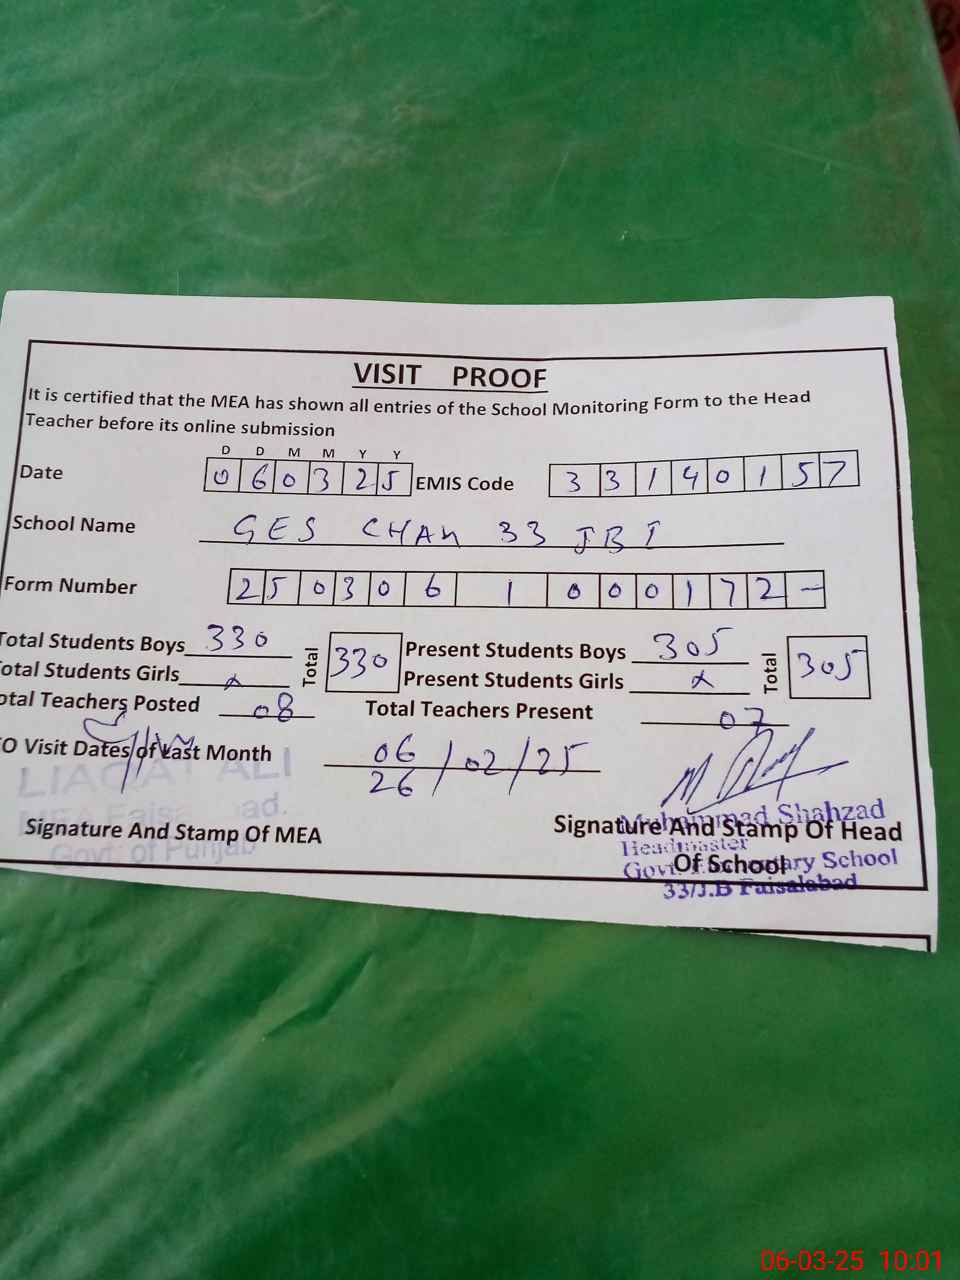 VISIT PROOF
It is certified that the MEA has shown all entries of the School Monitoring Form to the Head
Teacher before its online submission
D D M M Y Y
Date 0 6 0 3 2 5 EMIS Code 3 3 1 4 0 1 5 7
School Name GES CHAK 33 JB I
Form Number 2 5 0 3 0 6 1 0 0 0 1 7 2 -
Total Students Boys 330 Total 330 Present Students Boys 305 Total 305
otal Students Girls x Present Students Girls x
otal Teachers Posted 08 Total Teachers Present 07
EO Visit Dates of Last Month 06/26/02/25
LIAQAT ALI
MEA Faisalabad.
Govt. of Punjab
Signature And Stamp Of MEA
Muhammad Shahzad
Headmaster
Govt. Elementary School
33/J.B Faisalabad
Signature And Stamp Of Head
Of School
06-03-25 10:01